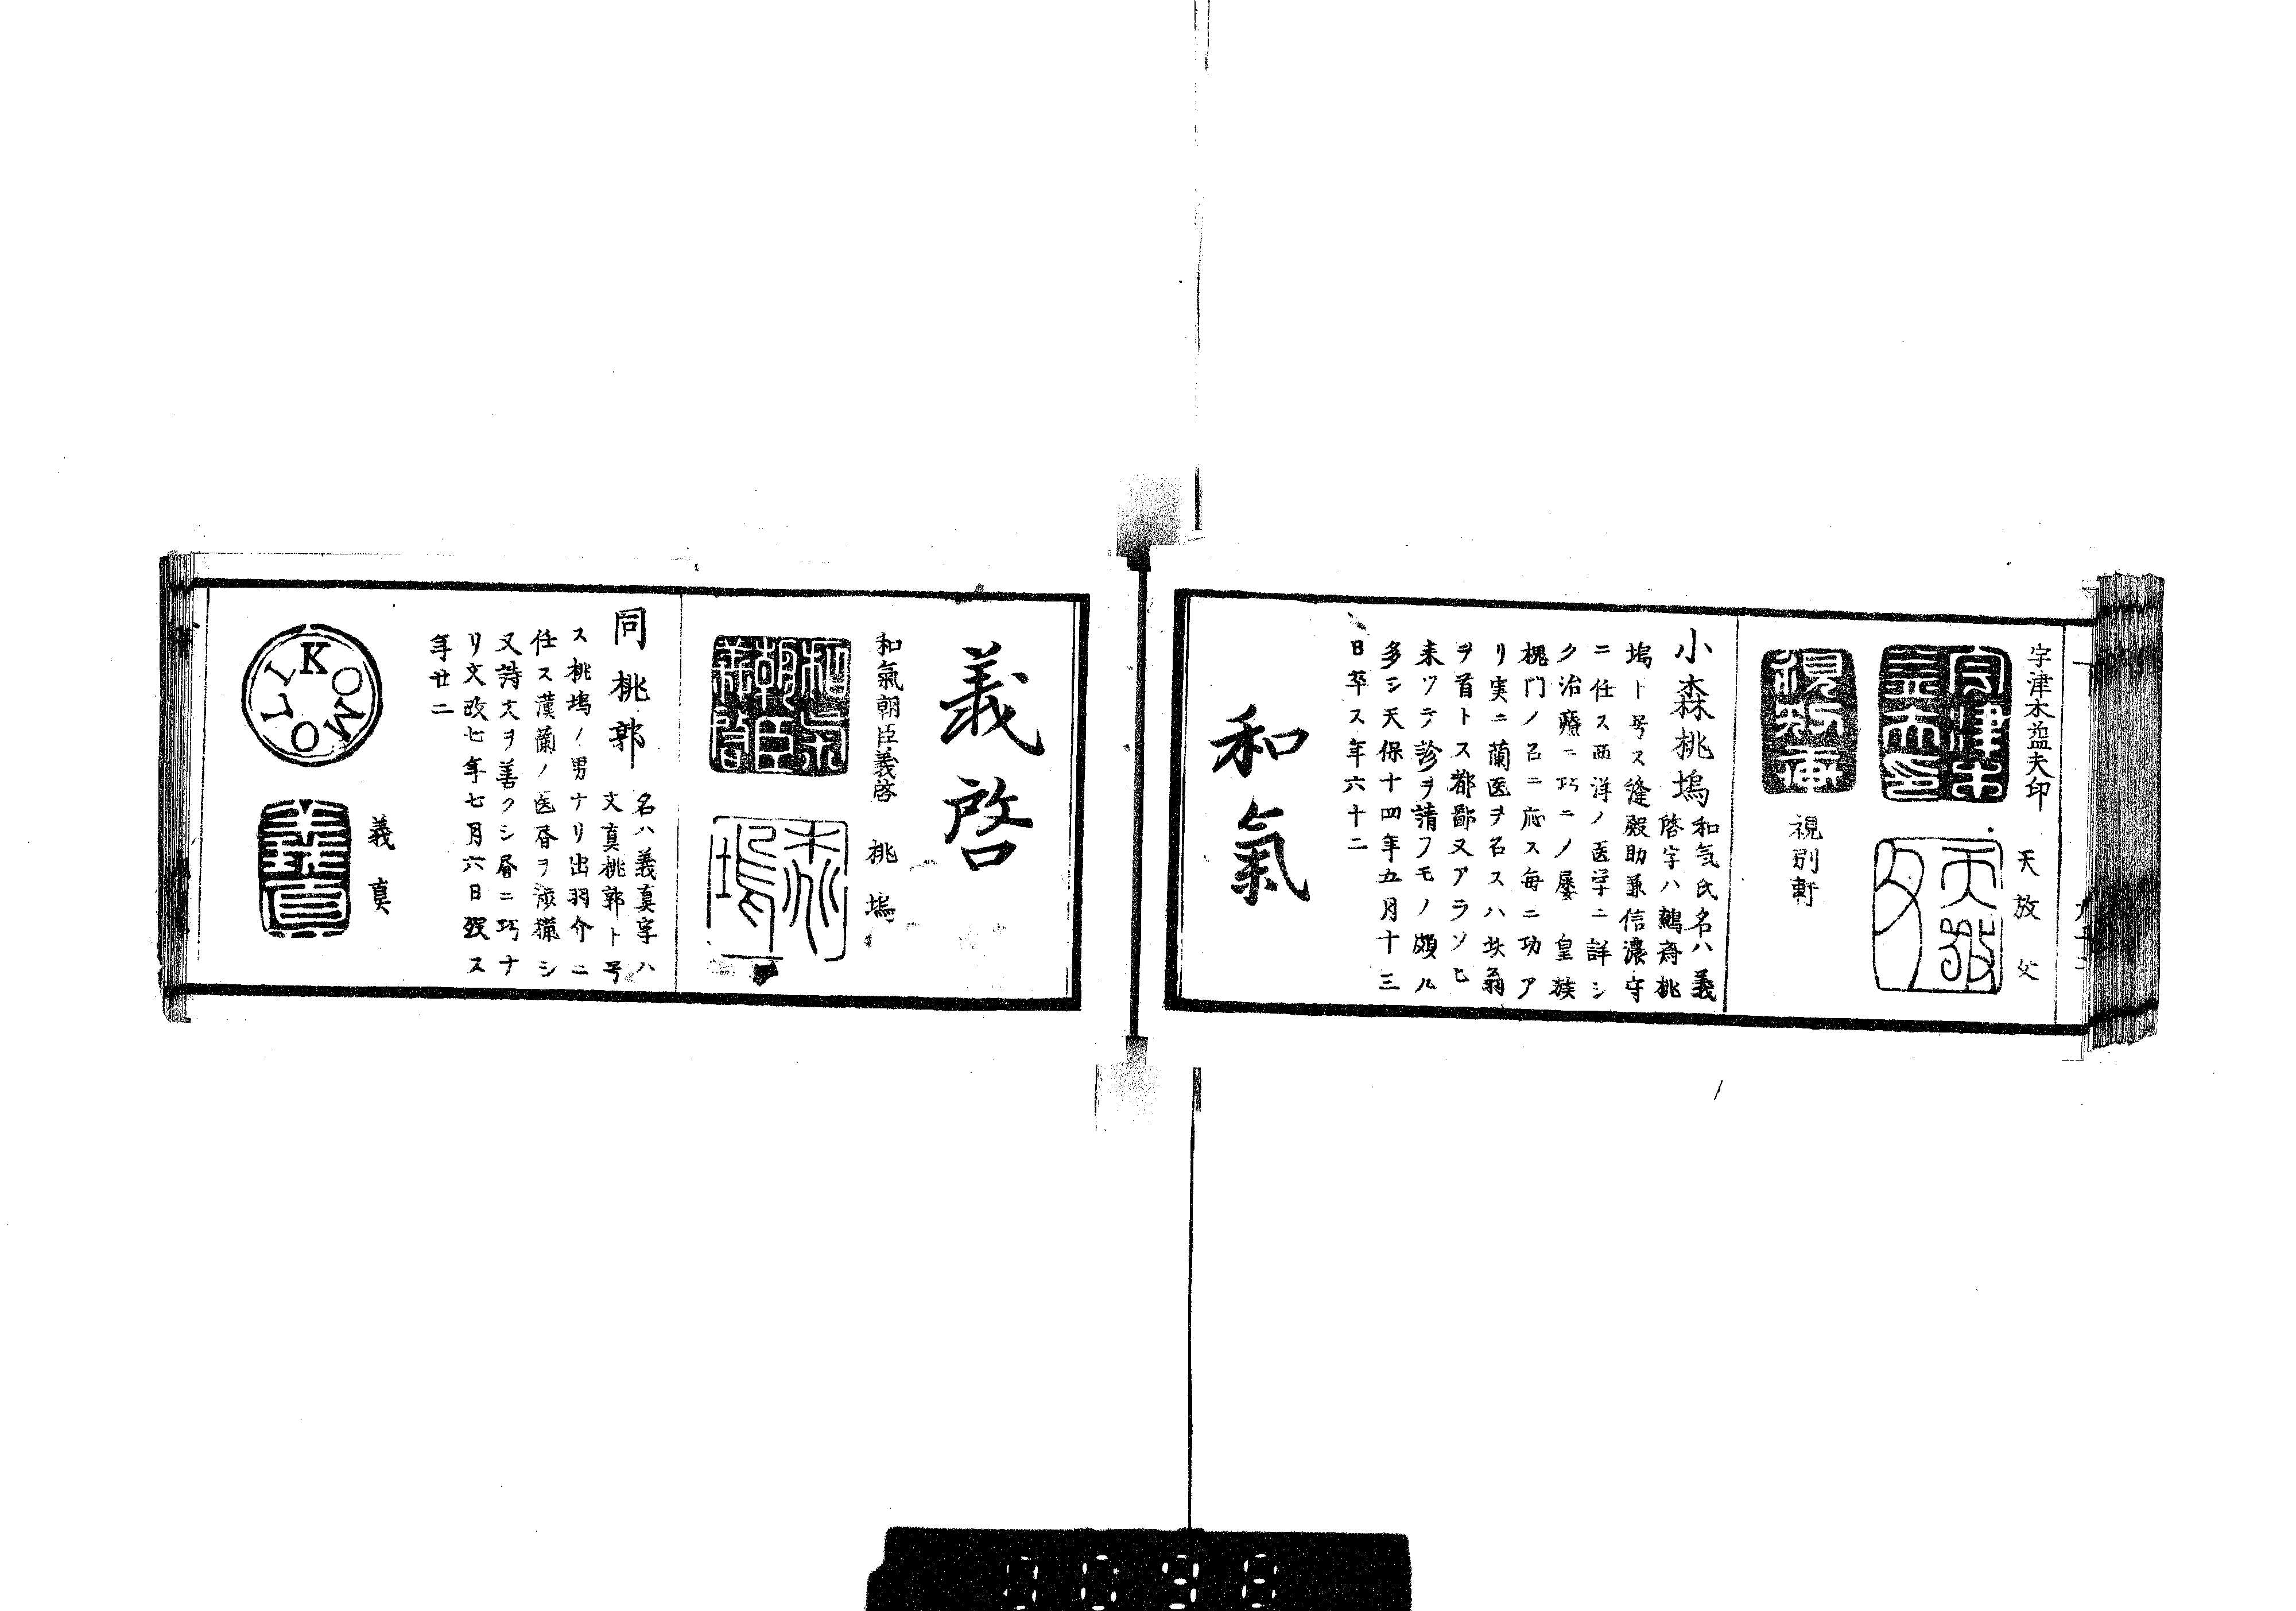 宇津木益夫印
天放父
視別軒
小森桃塢
和気氏名ハ義
啓字ハ鷯斎桃
塢ト号ス縫殿助兼信濃守
ニ任ス西洋ノ医学ニ詳シ
ク治療ニ巧ニノ屡 皇族
槐門ノ召ニ応ス毎ニ功ア
リ実ニ蘭医ヲ名スハ此翁
ヲ首トス都鄙又アラソヒ
来ツテ診ヲ請フモノ頗ル
多シ天保十四年五月十三
日卒ス年六十二
和氣
義啓
和氣朝臣義啓
桃塢
同桃郭
名ハ義真字ハ
文真桃郭ト号
ス桃塢ノ男ナリ出羽介ニ
任ス漢蘭ノ医書ヲ渉猟シ
又詩文ヲ善クシ書ニ巧ナ
リ文政七年七月六日歿ス
年廿二
KOMOLII
義真